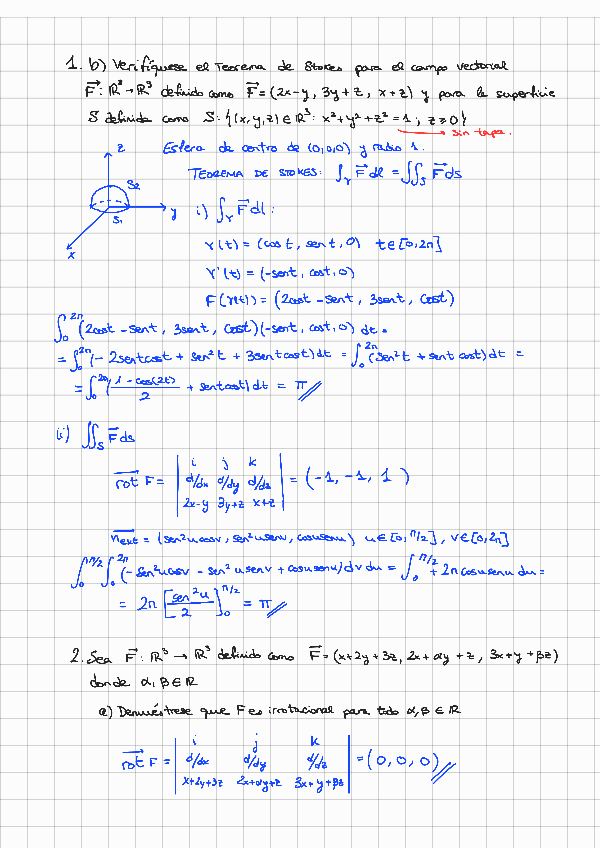 1. b) Verifíquese el Teorema de Stokes para el campo vectorial
F⃗: ℝ³ → ℝ³ definido como F⃗ = (2x-y, 3y+z, x+z) y para la superficie
S definida como S: {(x,y,z) ∈ ℝ³: x²+y²+z² = 1; z ≥ 0}
sin tapa.
Esfera de centro de (0,0,0) y radio 1.
TEOREMA DE STOKES: ∫_γ F⃗ dl = ∬_S F⃗ ds
z
S₂
S₁
y
x
i) ∫_γ F⃗ dl:
γ(t) = (cos t, sen t, 0) t ∈ [0, 2π]
γ'(t) = (-sen t, cos t, 0)
F(γ(t)) = (2cost - sent, 3sent, cost)
∫₀^2π (2cost - sent, 3sent, cost)(-sent, cost, 0) dt =
= ∫₀^2π (-2sentcost + sen²t + 3sentcost) dt = ∫₀^2π (sen²t + sent cost) dt =
= ∫₀^2π (1 - cos(2t))/2 + sentcost) dt = π
ii) ∬_S F⃗ ds
rot F = | i j k | = (-1, -1, 1)
d/dx d/dy d/dz
2x-y 3y+z x+z
n_ext = (sen²u cosv, sen²u senv, cosu senu) u ∈ [0, π/2], v ∈ [0, 2π]
∫₀^π/2 ∫₀^2π (-sen²u cosv - sen²u senv + cosu senu) dv du = ∫₀^π/2 +2π cosu senu du =
= 2π [sen²u/2]₀^π/2 = π
2. Sea F⃗: ℝ³ → ℝ³ definido como F⃗ = (x+2y+3z, 2x+αy+z, 3x+y+βz)
donde α, β ∈ ℝ
a) Demuéstrese que F es irrotacional para todo α, β ∈ ℝ
rot F = | i j k | = (0, 0, 0)
d/dx d/dy d/dz
x+2y+3z 2x+αy+z 3x+y+βz